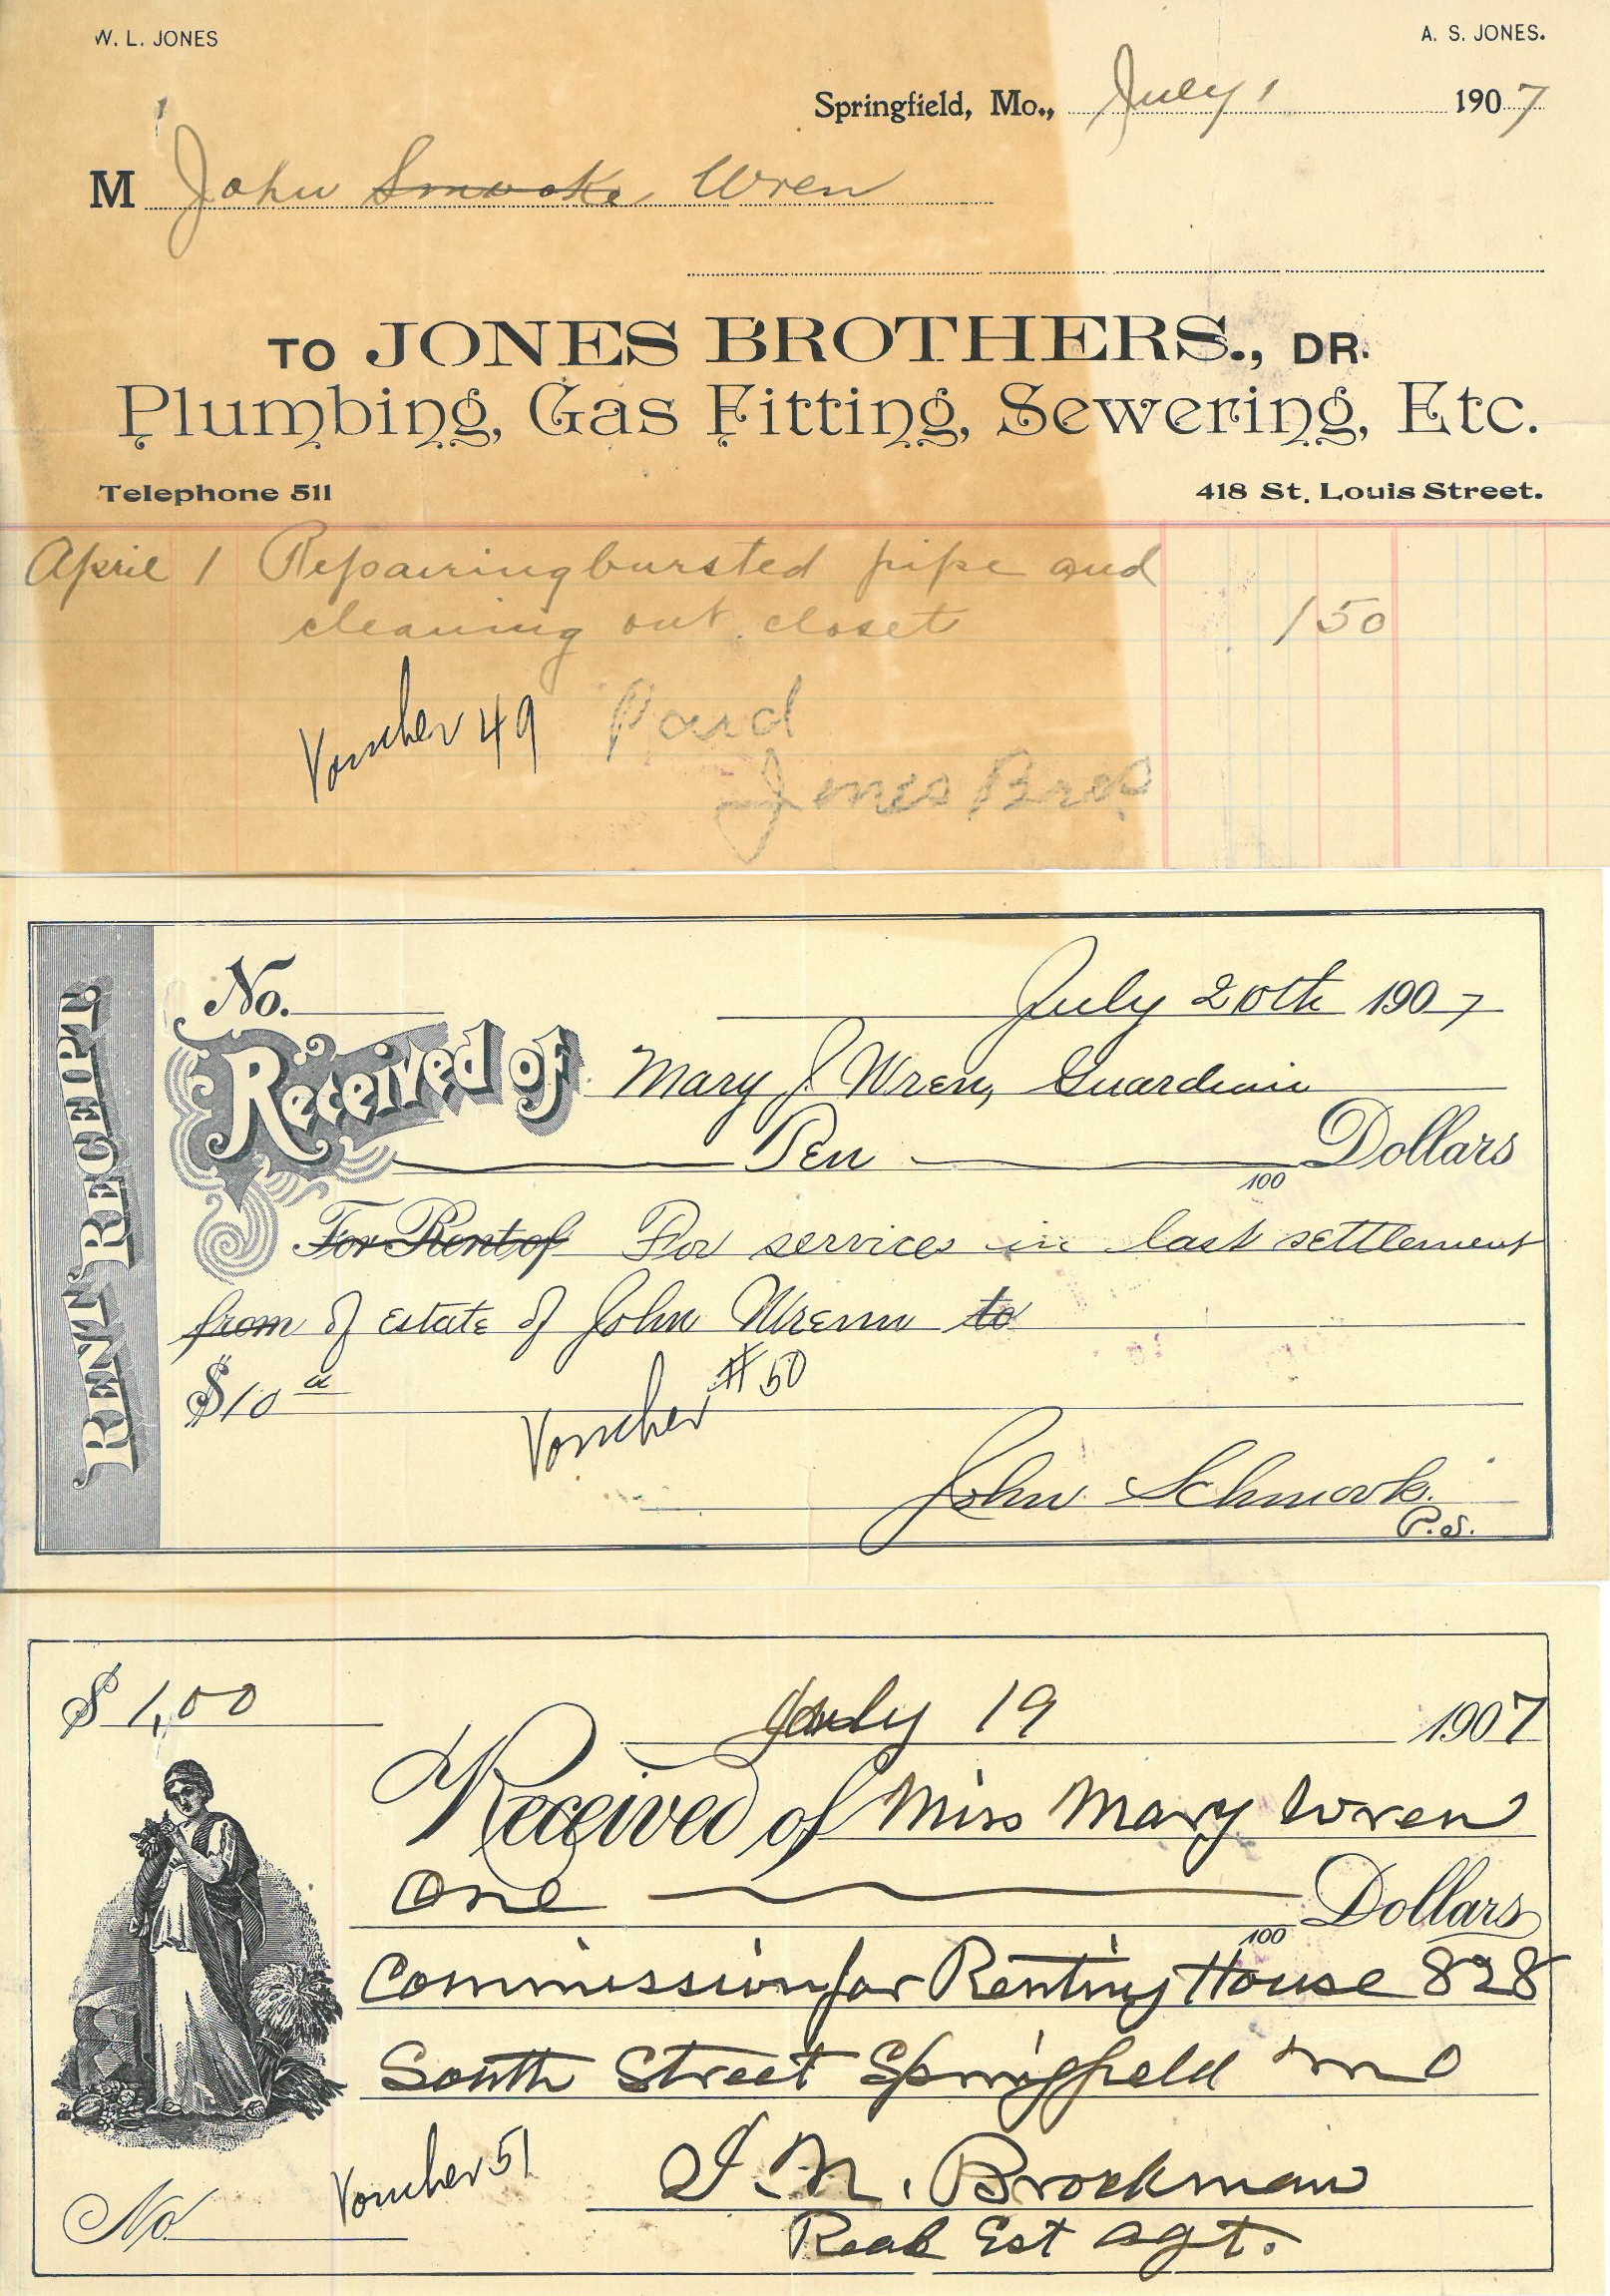 W. L. JONES A. S. JONES.
Springfield, Mo., July 1 1907
M John Smooke Wren
TO JONES BROTHERS., DR.
Plumbing, Gas Fitting, Sewering, Etc.
Telephone 511 418 St. Louis Street.
April 1 Repairing bursted pipe and
cleaning out closet 1 50
Voucher 49 Paid
Jones Bros
RENT RECEIPT.
No. July 20th 1907
Received of Mary J. Wren, Guardian
Ten 100 Dollars
For Rent of For services in last settlement
from of Estate of John Wrenn to
$10
Voucher #50
John Schmook.
P.J.
$ 1,00 July 19 1907
Received of Miss Mary Wren
One 100 Dollars
Commission for Renting House 828
South Street Springfield Mo
Voucher 51 I. N. Brockman
No Real Est Agt.